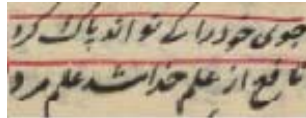 جوی خود را کے تواند پاک کرد
نافع از علم خدا شد علم مرد